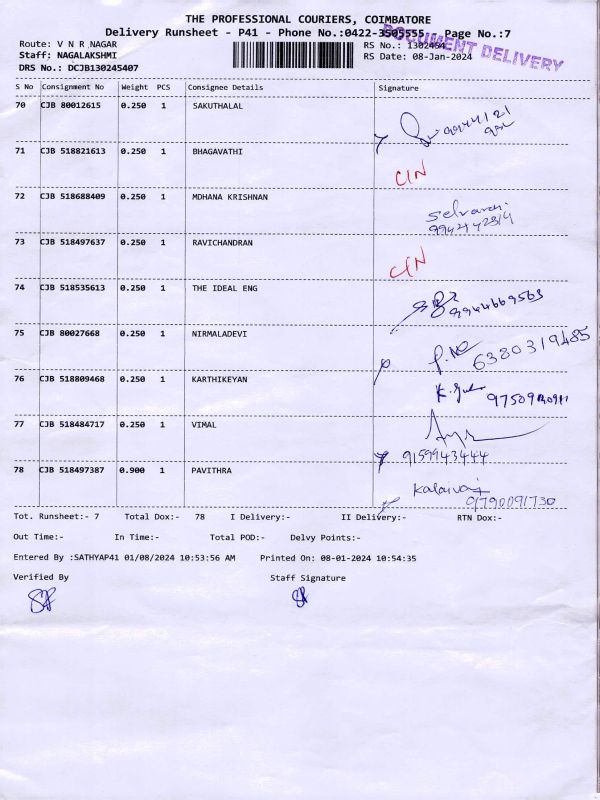 THE PROFESSIONAL COURIERS, COIMBATORE
Delivery Runsheet - P41 - Phone No.:0422-3505555 Page No.:7
DOCUMENT DELIVERY
Route: V N R NAGAR
RS No.: 1302454
Staff: NAGALAKSHMI
RS Date: 08-Jan-2024
DRS No.: DCJB130245407
S No Consignment No Weight PCS Consignee Details Signature
70 CJB 80012615 0.250 1 SAKUTHALAL
71 CJB 518821613 0.250 1 BHAGAVATHI C/N
72 CJB 518688409 0.250 1 MDHANA KRISHNAN
73 CJB 518497637 0.250 1 RAVICHANDRAN C/N
74 CJB 518535613 0.250 1 THE IDEAL ENG 9944669563
75 CJB 80027668 0.250 1 NIRMALADEVI 6380319485
76 CJB 518809468 0.250 1 KARTHIKEYAN
77 CJB 518484717 0.250 1 VIMAL 9159943444
78 CJB 518497387 0.900 1 PAVITHRA 9790091730
Tot. Runsheet:- 7 Total Dox:- 78 I Delivery:- II Delivery:- RTN Dox:-
Out Time:- In Time:- Total POD:- Delvy Points:-
Entered By :SATHYAP41 01/08/2024 10:53:56 AM Printed On: 08-01-2024 10:54:35
Verified By Staff Signature